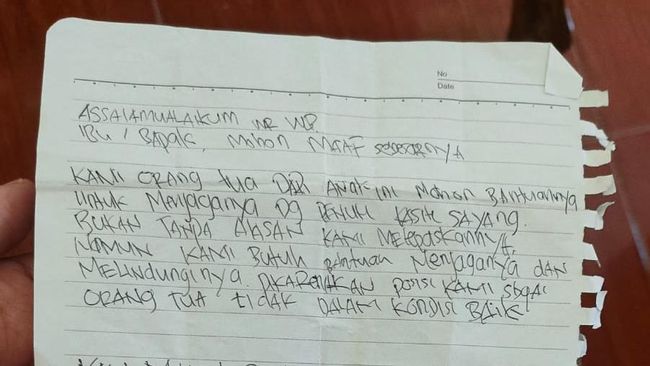 No
Date
ASSALAMUALAIKUM WR WB.
IBU / BAPAK, MOHON MAAF sebesarnya
KAMI ORANG tua DARI ANAK INI MOHON BANTUANNYA
UNTUK MENJAGANYA DG PENUH KASIH SAYANG.
BUKAN TANPA ALASAN KAMI MELEPASKANNYA,
NAMUN KAMI BUTUH BANTUAN MENJAGANYA DAN
MELINDUNGINYA. DIKARENAKAN POSISI KAMI SBGAI
ORANG TUA tIDAK DALAM KONDISI BAIK